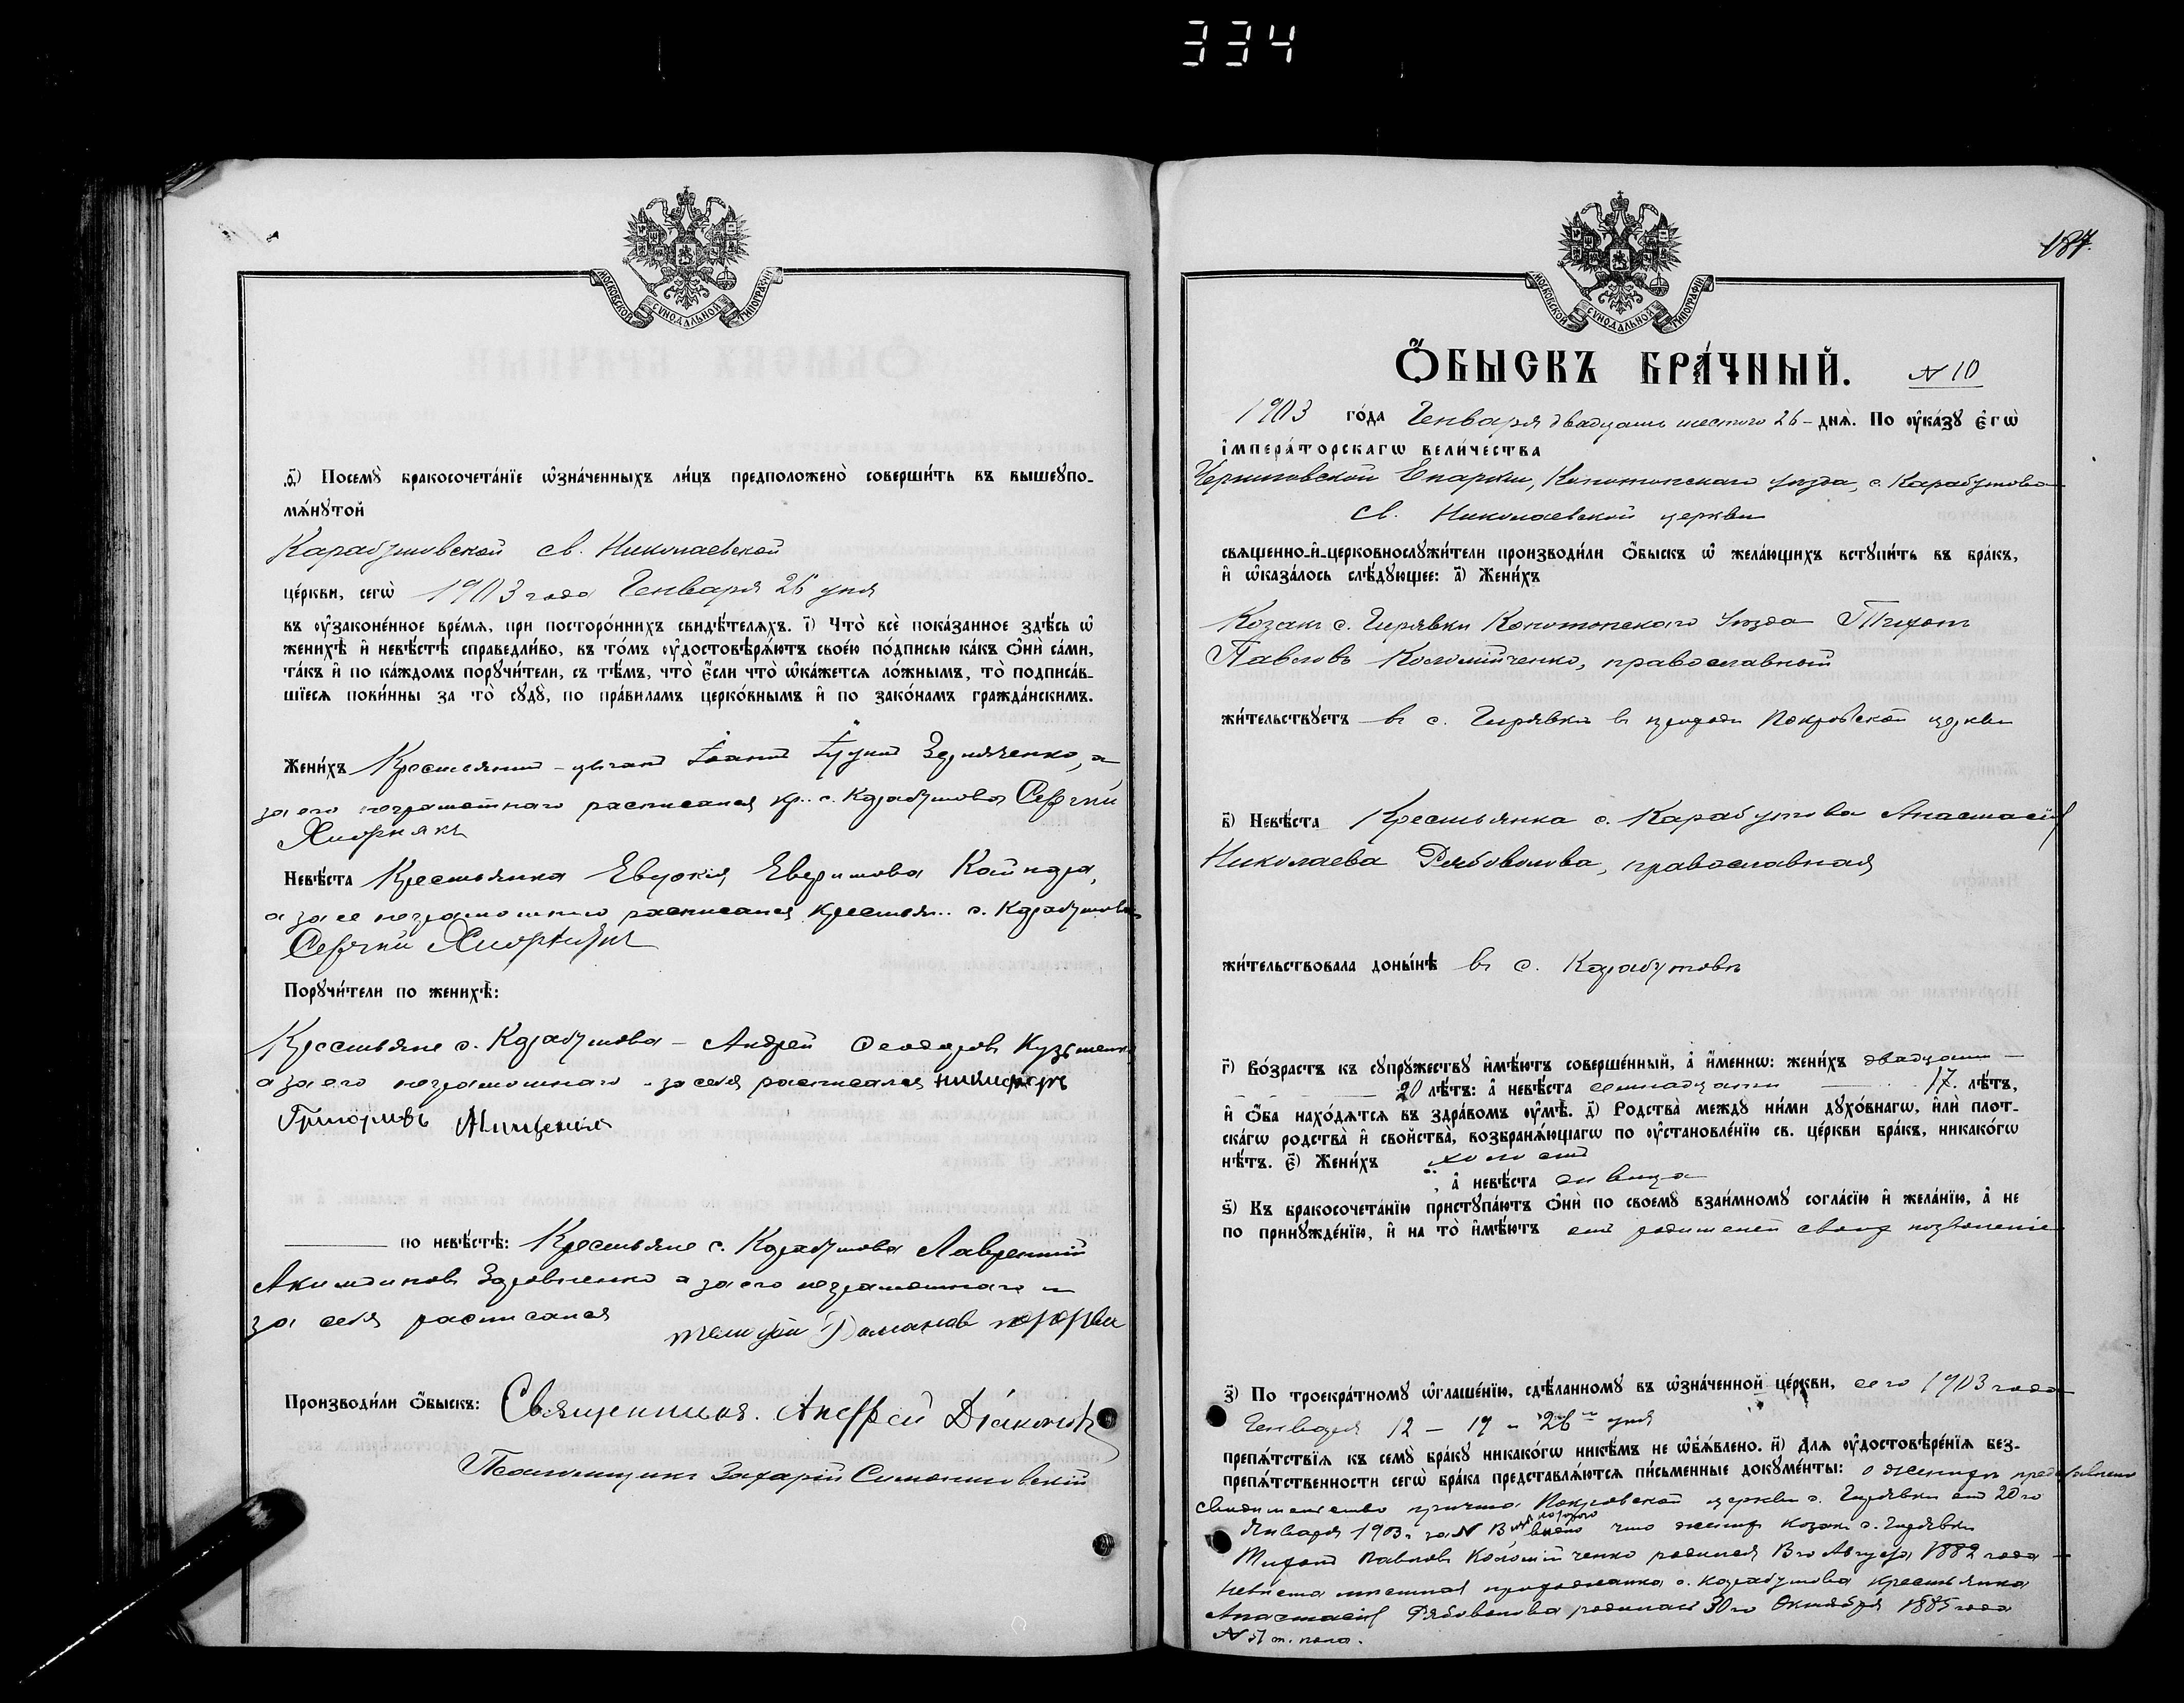 334
МОСКОВСКОЙ СѴНОДАЛЬНОЙ ТИПОГРАФІИ
Ѳ҃) Посемꙋ̀ бракосочета́нїе ѡ҆зна́ченныхъ ли́цъ предположено̀ соверши́ть въ вышеꙋпо-
мѧ́нꙋтой
Карабутовской св. Николаевской
це́ркви, сегѡ̀ 1903 года Генваря 26 дня
въ ᲂу҆законе́нное вре́мѧ, при посторо́ннихъ свидѣ́телѧхъ. І҃) Что̀ всѐ пока́занное здѣ́сь ѡ҆
женихѣ̀ и҆ невѣ́стѣ справедли́во, въ то́мъ ᲂу҆достовѣрѧ́ютъ свое́ю по́дписью ка́къ ѻ҆нѝ са́ми,
та́къ и҆ по ка́ждомъ порꙋчи́тели, съ тѣ́мъ, что̀ є҆́сли что̀ ѡ҆ка́жетсѧ ло́жнымъ, то̀ подписа́в-
шїесѧ пови́нны за то̀ сꙋдꙋ̀, по пра́виламъ церко́внымъ и҆ по зако́намъ гражда́нскимъ.
Жени́хъ Крестьянинъ - цыганъ Іоаннъ, а
за его неграмотнаго расписался кр. с. Карабутова Сергѣй
Невѣ́ста Крестьянка Евдокія,
а за ее неграмотную расписался крестьян. с. Карабутова
Сергѣй
Порꙋчи́тели по женихѣ̀:
Крестьяне с. Карабутова - Андрей Ѳеодоровъ Кузьменко
а за его неграмотнаго - за себя расписался никифоръ
Григорьевъ Мищенко
по невѣ́стѣ: Крестьяне с. Карабутова Лаврентій
а за его неграмотнаго и
за себя расписался
Производи́ли ѻ҆́быскъ: Священникъ. Андрей Діаконовъ
Псаломщикъ Захарій Симонтовскій
187.
МОСКОВСКОЙ СѴНОДАЛЬНОЙ ТИПОГРАФІИ
Ѻ҆́БЫСКЪ БРА́ЧНЫЙ. N 10
1903 го́да Генваря двадцать шестого 26 - днѧ̀. По ᲂу҆ка́зꙋ є҆гѡ̀
і҆мпера́торскагѡ вели́чества
Черниговской Епархіи, Конотопскаго уѣзда, с. Карабутова
св. Николаевской церкви
свѧщенно-и҆-церковнослꙋжи́тели производи́ли ѻ҆́быскъ ѡ҆ жела́ющихъ встꙋпи́ть въ бра́къ,
и҆ ѡ҆каза́лось слѣ́дꙋющее: А҃) Жени́хъ
Козакъ с. Гирявки Конотопскаго уѣзда Тихонъ
Павловъ Коломійченко, православный
жи́тельствꙋетъ въ с. Гирявки въ приходѣ Покровской церкви
В҃) Невѣ́ста Крестьянка с. Карабутова Анастасія
Николаева Рябоволова, православная
жи́тельствовала доны́нѣ въ с. Карабутовѣ
Г҃) Во́зрастъ къ сꙋпрꙋ́жествꙋ и҆мѣ́ютъ соверше́нный, а҆ и҆́меннѡ: жени́хъ двадцать —
20 лѣ́тъ: а҆ невѣ́ста семнадцати — 17. лѣ́тъ,
и҆ ѻ҆́ба нахо́дѧтсѧ въ здра́вомъ ᲂу҆мѣ̀. Д҃) Родства̀ междꙋ̀ ни́ми дꙋхо́внагѡ, и҆лѝ плот-
ска́гѡ родства̀ и҆ свойства̀, возбранѧ́ющагѡ по ᲂу҆становле́нїю св. це́ркви бра́къ, никако́гѡ
нѣ́тъ. Є҃) Жени́хъ холостъ
, а҆ невѣ́ста дѣвица
Ѕ҃) Къ бракосочета́нїю пристꙋпа́ютъ ѻ҆нѝ по своемꙋ̀ взаи́мномꙋ согла́сїю и҆ жела́нїю, а҆ не
по принꙋжде́нїю, и҆ на то̀ и҆мѣ́ютъ отъ родителей своихъ позволеніе
З҃) По троекра́тномꙋ ѡ҆глаше́нїю, сдѣ́ланномꙋ въ ѡ҆зна́ченной це́ркви, сего 1903 года
Генваря 12 - 19 и 26го дня
препѧ́тствїѧ къ семꙋ̀ бра́кꙋ никако́гѡ никѣ́мъ не ѡ҆б̾ѧ́влено. И҃) Длѧ ᲂу҆достовѣре́нїѧ без-
препѧ́тственности сегѡ̀ бра́ка представлѧ́ютсѧ пи́сьменные докꙋме́нты: о женихѣ представлено
свидѣтельство причта Покровской церкви с. Гирявки отъ 20го
Января 1903 г. за N 13 изъ котораго видно что женихъ козакъ с. Гирявки
Тихонъ Павловъ Коломійченко родился 13го Августа 1882 года -
Невѣста мѣстная прихожанка с. Карабутова крестьянка
Анастасія Рябоволова родилась 30го Октября 1885 года
N 51 ж. пола.